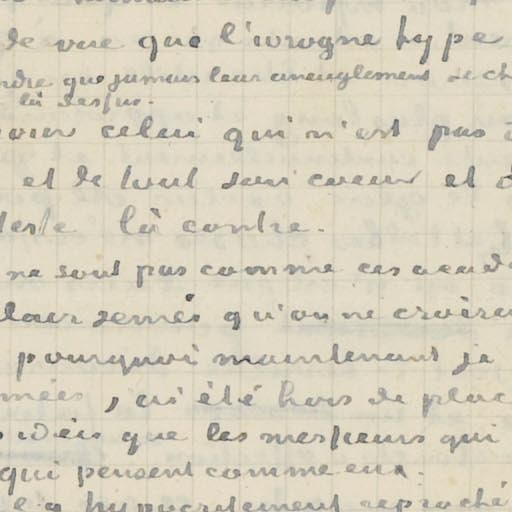 de vue que l'ivrogne hype
que jamais leur aveuglement
là dessus.
celui qui n'est pas
et de tout son coeur et
là contre.
ne sont pas comme ces
clair semés qu'on ne croirai
pourquoi maintenant je
j'ai été hors de plac
idées que les messieurs qui
qui pensent comme eux.
hypocritement reproché